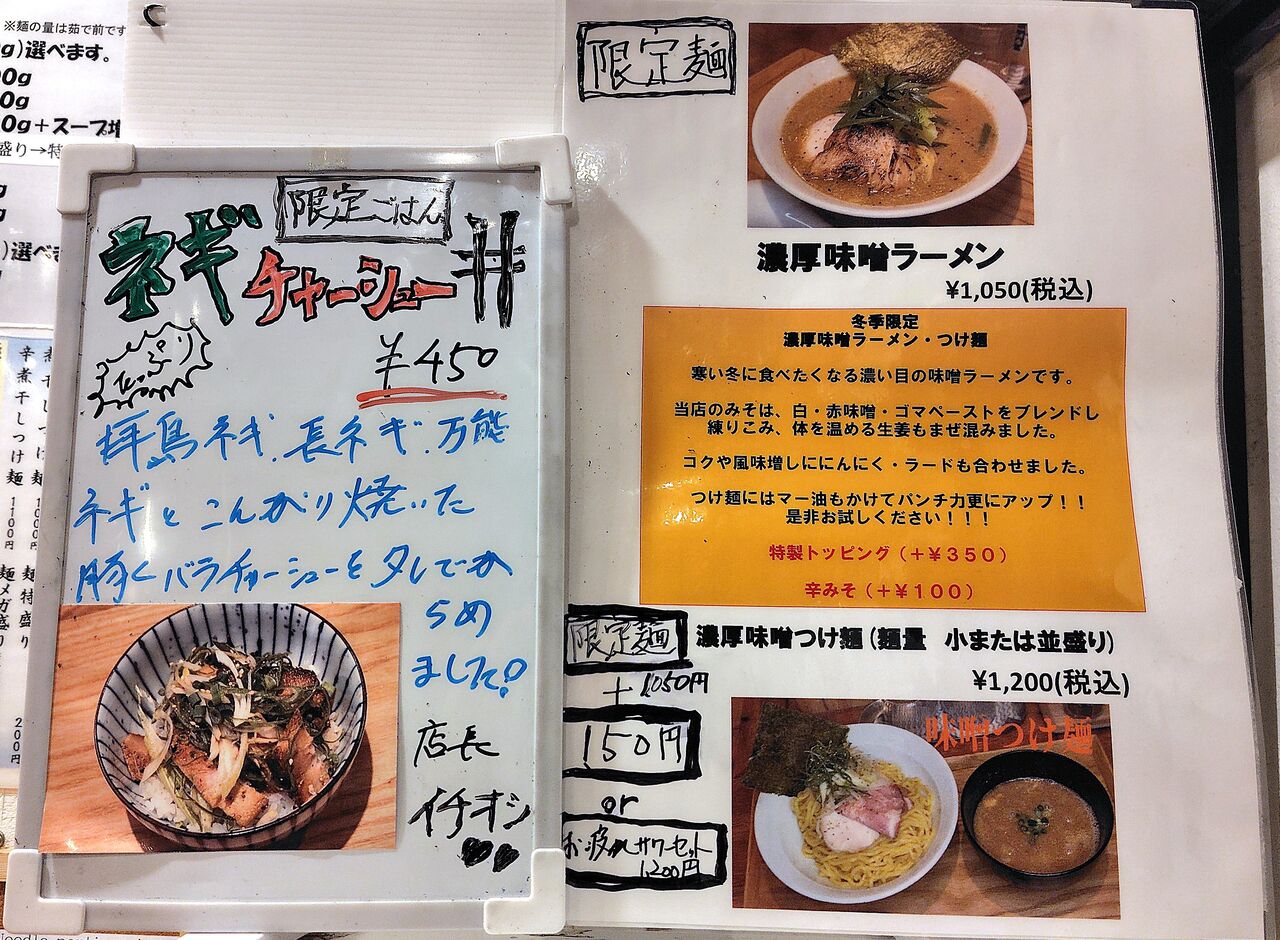 ※麺の量は茹で前です
g)選べます。
0g
0g
0g＋スープ増
盛り→特
)選べま
煮干しつけ麺 1000円
辛煮干しつけ麺 1100円
麺特盛り
麺メガ盛り 200円
限定ごはん
ネギ
チャーシュー丼
¥450
拝島ネギ、長ネギ、万能
ネギとこんがり焼いた
豚バラチャーシューをタレでか
らめ
ました!
店長
イチオシ
限定麺
濃厚味噌ラーメン
¥1,050(税込)
冬季限定
濃厚味噌ラーメン・つけ麺
寒い冬に食べたくなる濃い目の味噌ラーメンです。
当店のみそは、白・赤味噌・ゴマペーストをブレンドし
練りこみ、体を温める生姜もまぜ混みました。
コクや風味増しににんにく・ラードも合わせました。
つけ麺にはマー油もかけてパンチ力更にアップ！！
是非お試しください！！！
特製トッピング（＋¥３５０）
辛みそ（＋¥１００）
限定麺
濃厚味噌つけ麺（麺量　小または並盛り）
¥1,200(税込)
＋
1,050円
150円
or
お疲れサワーセット
1,200円
味噌つけ麺